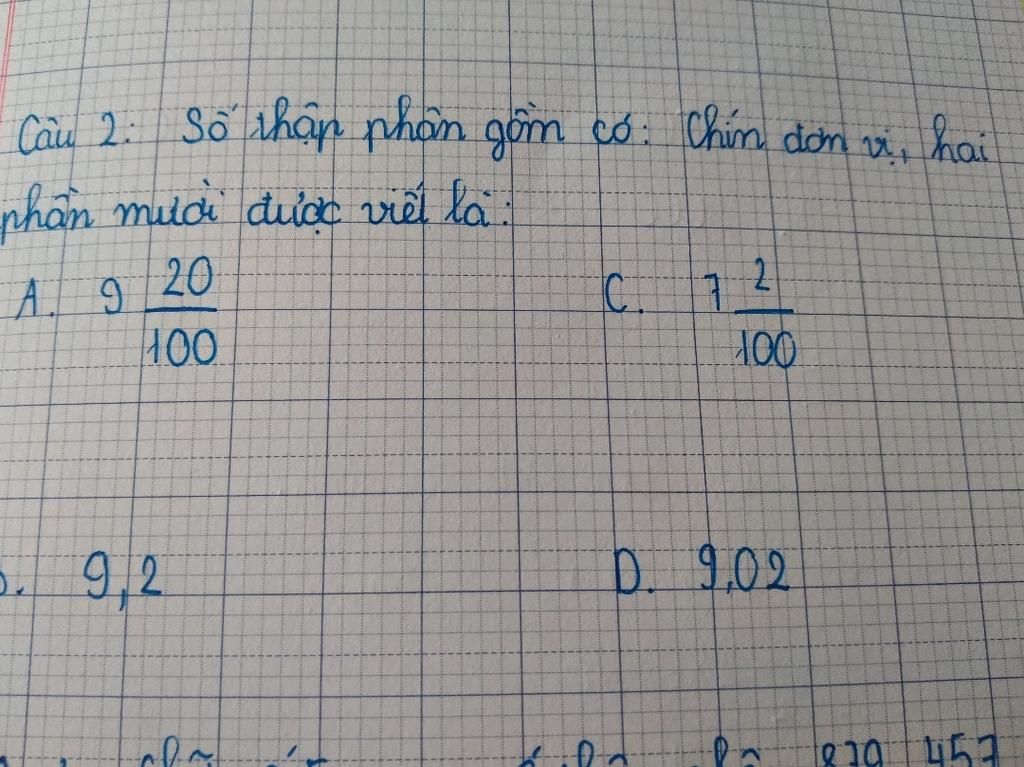 Câu 2: Số thập phân gồm có: Chín đơn vị, hai
phần mười được viết là:
A. 9 20/100 C. 7 2/100
9,2 D. 9,02
879 457